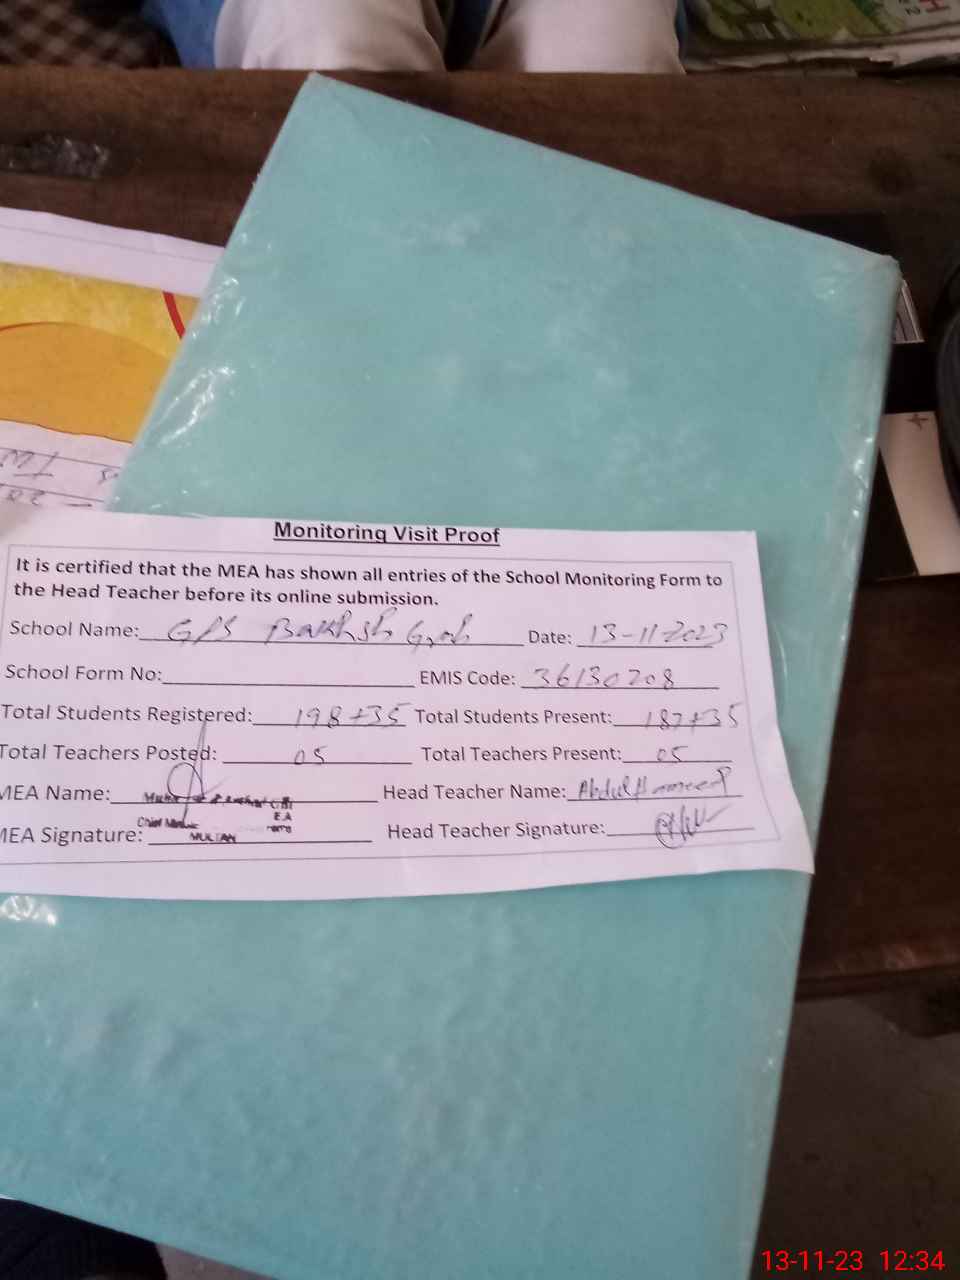 Monitoring Visit Proof
It is certified that the MEA has shown all entries of the School Monitoring Form to
the Head Teacher before its online submission.
School Name: GPS Bakhsh Date: 13-11-2023
School Form No: EMIS Code: 36130208
Total Students Registered: 198+35 Total Students Present: 187+35
Total Teachers Posted: 05 Total Teachers Present: 05
MEA Name: Head Teacher Name: Abdul Hameed
E.A
Chief
MEA Signature: MULTAN Head Teacher Signature:
13-11-23 12:34